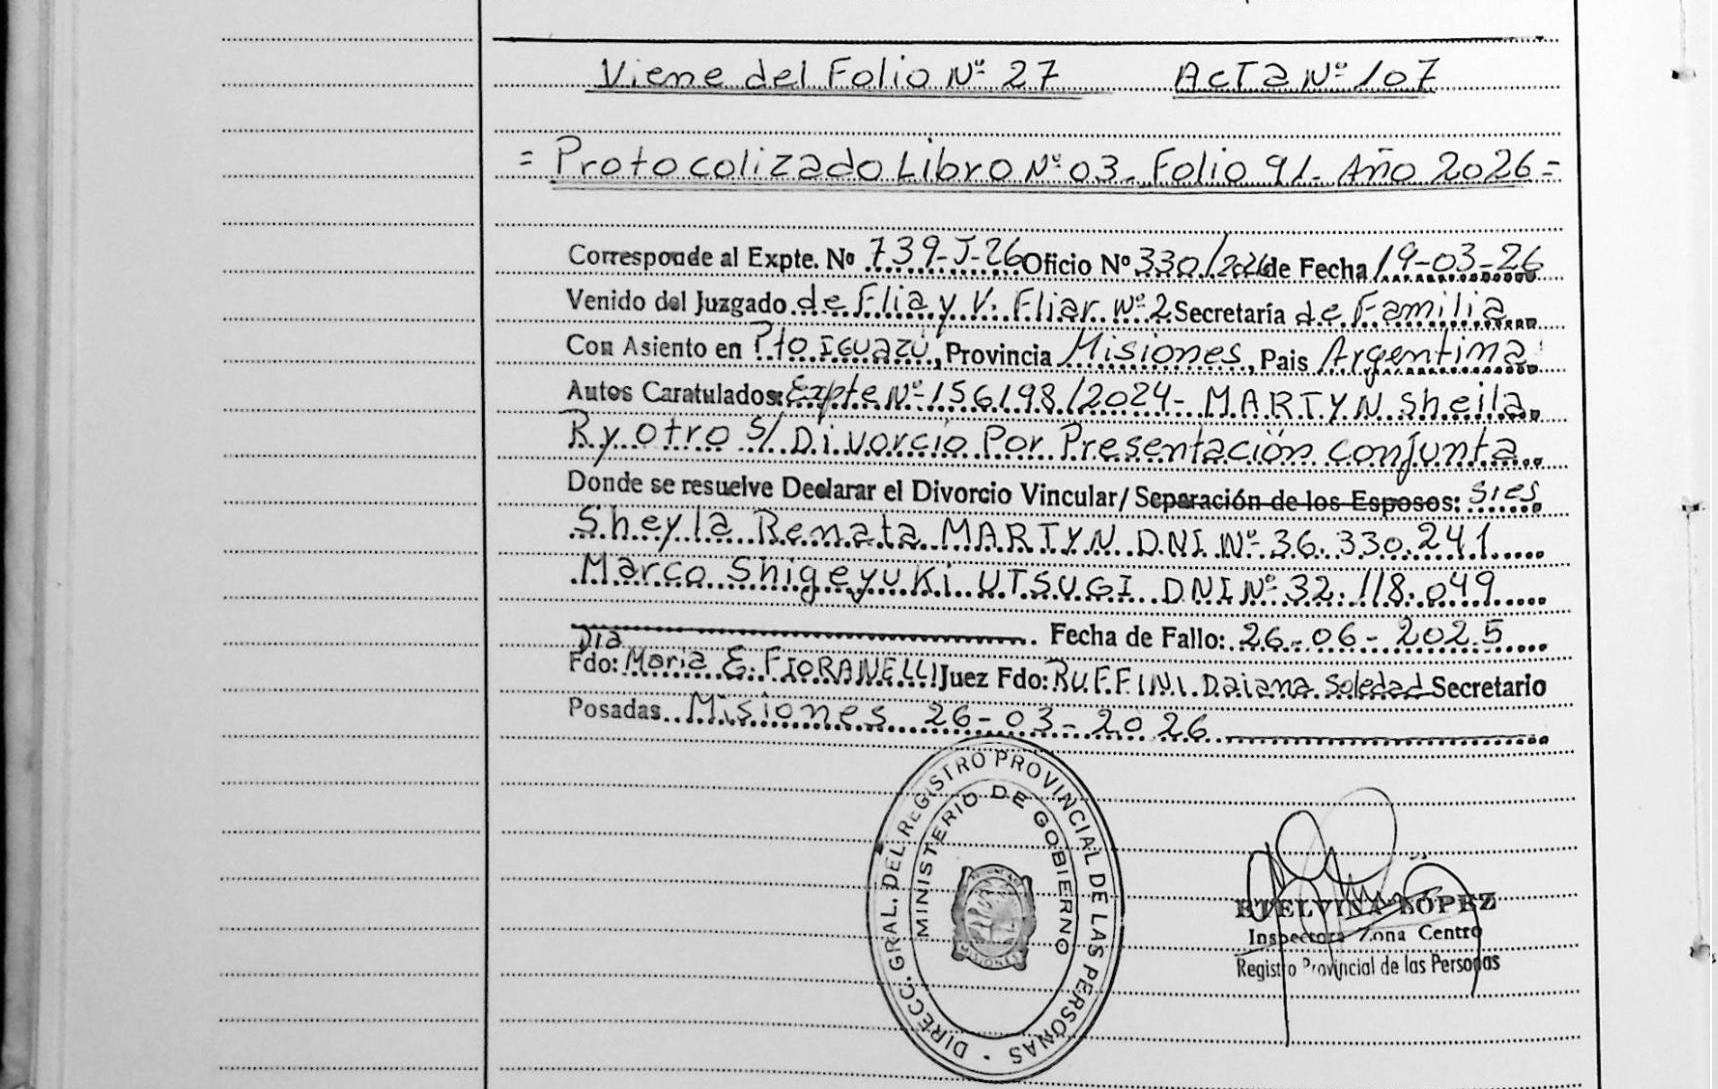 Viene del Folio Nº 27 Acta Nº 107
= Protocolizado Libro Nº 03. Folio 91. Año 2026 =
Corresponde al Expte. Nº 739-J-26 Oficio Nº 330/2026 de Fecha 19-03-26
Venido del Juzgado de Flia y V. Fliar Nº 2 Secretaría de Familia
Con Asiento en Pto Iguazú, Provincia Misiones, Pais Argentina
Autos Caratulados: Expte Nº 156198/2024- MARTYN Sheila
R y otro S/ Divorcio Por Presentación conjunta
Donde se resuelve Declarar el Divorcio Vincular/ Separación de los Esposos:
Sheyla Renata MARTYN DNI Nº 36.330.241
Marco Shigeyuki UTSUGI DNI Nº 32.118.049
Fecha de Fallo: 26-06-2025
Dra
Fdo: Maria E. FIORANELLI Juez Fdo: RUFFINI Daiana Soledad Secretario
Posadas Misiones 26-03-2026
DIRECC. GRAL. DEL REGISTRO PROVINCIAL DE LAS PERSONAS
MINISTERIO DE GOBIERNO
MISIONES
ETELVINA LOPEZ
Inspectora Zona Centro
Registro Provincial de las Personas